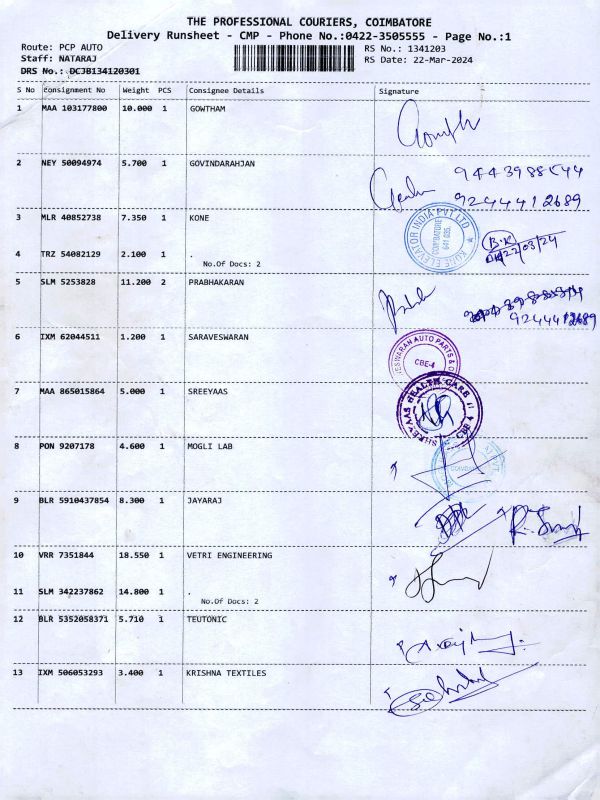 THE PROFESSIONAL COURIERS, COIMBATORE
Delivery Runsheet - CMP - Phone No.:0422-3505555 - Page No.:1
Route: PCP AUTO RS No.: 1341203
Staff: NATARAJ RS Date: 22-Mar-2024
DRS No.: DCJB134120301
S No Consignment No Weight PCS Consignee Details Signature
1 MAA 103177800 10.000 1 GOWTHAM
2 NEY 50094974 5.700 1 GOVINDARAHJAN
9244412689
3 MLR 40852738 7.350 1 KONE
KONE ELEVATOR INDIA PVT LTD
COIMBATORE
641 035.
B.K
22/03/24
4 TRZ 54082129 2.100 1 .
No.Of Docs: 2
5 SLM 5253828 11.200 2 PRABHAKARAN
9244412689
6 IXM 62044511 1.200 1 SARAVESWARAN
ESWARAN AUTO PARTS &
CBE-4
7 MAA 865015864 5.000 1 SREEYAAS
SHREYAAS HEALTH CARE
CBE 4
8 PON 9207178 4.600 1 MOGLI LAB
9 BLR 5910437854 8.300 1 JAYARAJ
10 VRR 7351844 18.550 1 VETRI ENGINEERING
11 SLM 342237862 14.800 1 .
No.Of Docs: 2
12 BLR 5352058371 5.710 1 TEUTONIC
13 IXM 506053293 3.400 1 KRISHNA TEXTILES